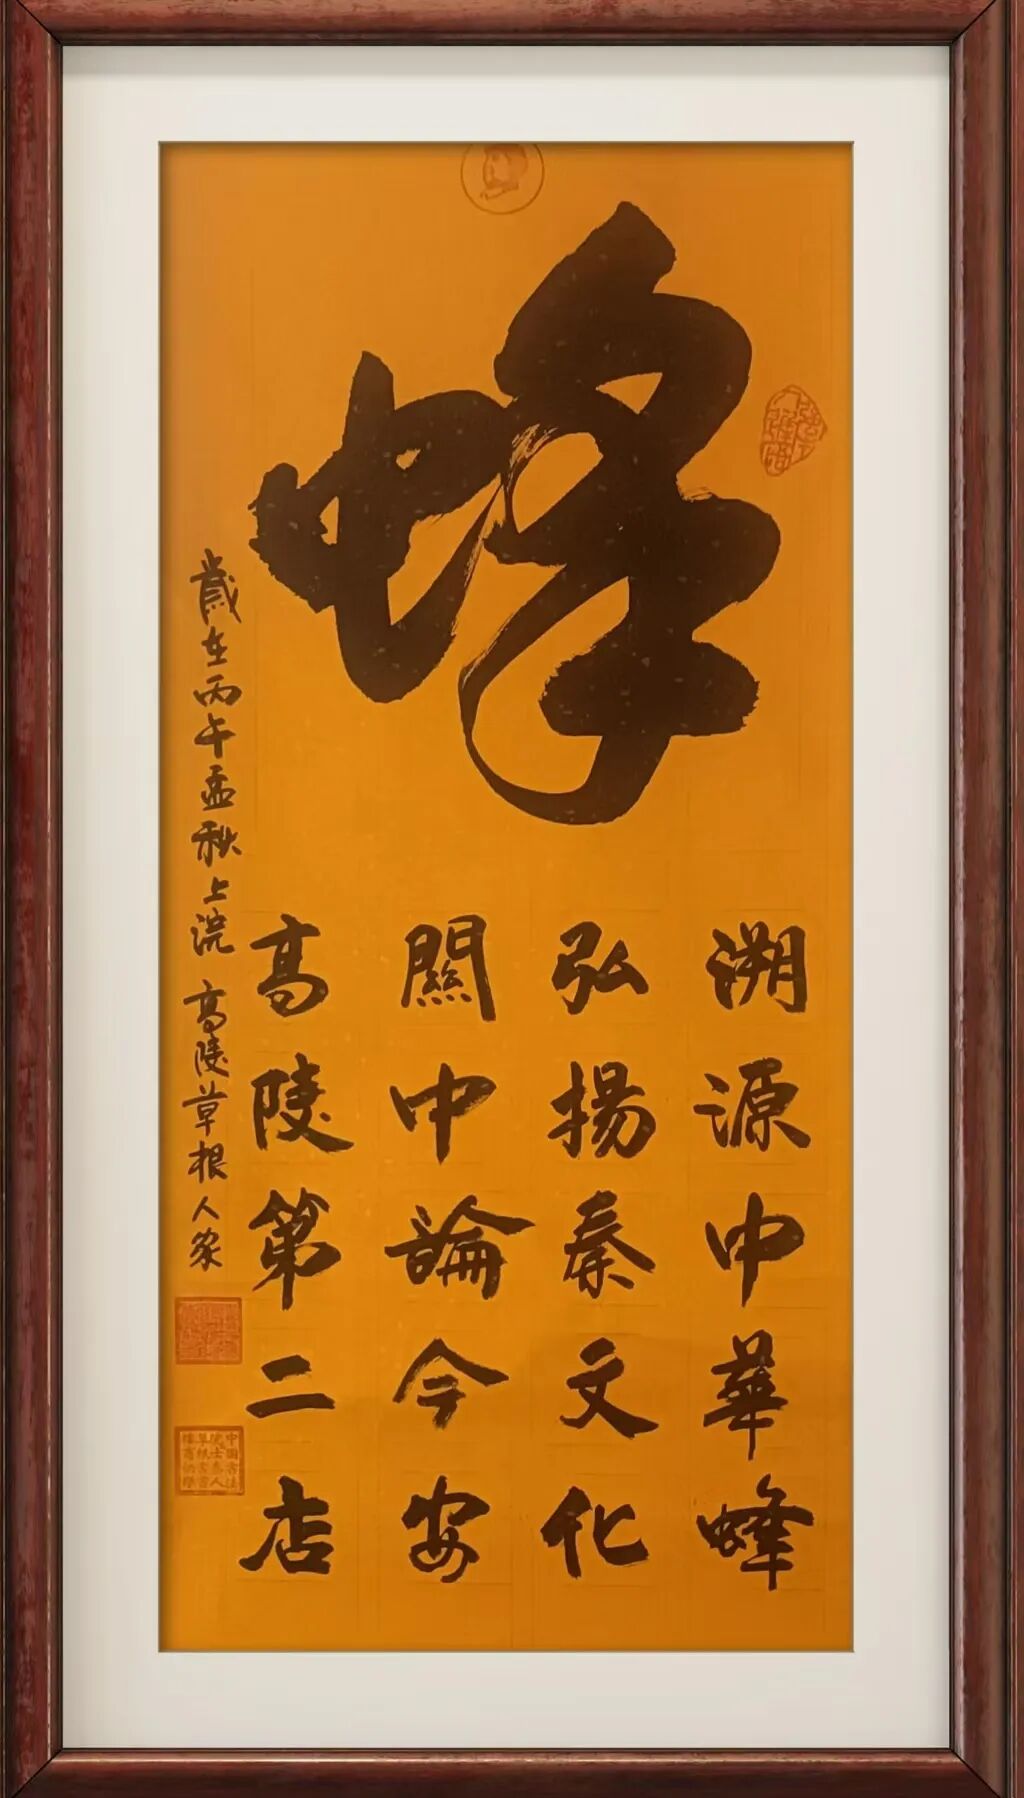 蜂
溯源中華蜂
弘揚秦文化
關中論今安
高陵第二店
歲在丙午孟秋上浣 高陵草根人家